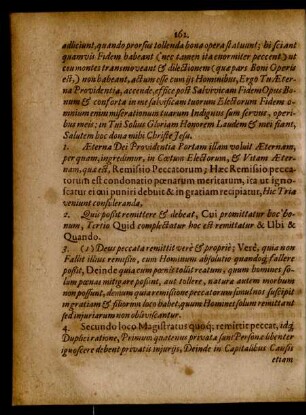 162.
adjiciunt, quando prorsus tollenda bona opera statuunt; hi sciant
quamvis Fidem habeant (nec tamen ita enormiter peccent) ut
eeu montes transmoveant & dilectionem (quæ pars Boni Operis
est,) non habeant, actum esse cum ijs Hominibus, Ergo Tu Æter-
na Providentia, accende, effice post Salvivicam Fidem Opus Bo-
num & conforta in me salvificam tuorum Electorum Fidem o-
mnium enim miserationum tuarum Indignus sum servus, operi-
bus meis; in Tui Solius Gloriam Honorem Laudem & mei fiant,
Salutem hoc dona mihi Christe Jesu.
1. Æterna Dei Providentia Portam illam voluit Æternam,
per quam, ingredimur, in Cœtum Electorum, & Vitam Æter-
nam, quæ est, Remissio Peccatorum; Hæc Remissio pecca-
torum est condonatio pœnarum meritarum, ita ut igno-
scatur ei qui puniri debuit & in gratiam recipiatur, Hic Tria
veniunt consideranda.
2. Quis possit remittere & debeat, Cui promittatur hoc bo-
num, Tertio Quid complectatur hoc est remittatur & Ubi &
Quando.
3. (1) Deus peccata remittit verè & propriè; Verè, quia non
Fallit illius remissio, cum Hominum absolutio quandoq; fallere
possit, Deinde quia cum pœnis tollit reatum, quum homines so-
lum pœnas mitigare possint, aut tollere, naturâ autem morbum
non possunt, denium quia remissione peccatorum simul nos suscipit
in gratiam & filiorum loco habet quum Homines solum remittant
sed injuriarum non obliviscantur.
4. Secundo loco Magistratus quoq; remittit peccat, idq;
Duplici ratione, Primum quatenus privata sunt Personæ libenter
ignoscere debent privatis injurijs, Deinde in Capitalibus Causis
etiam